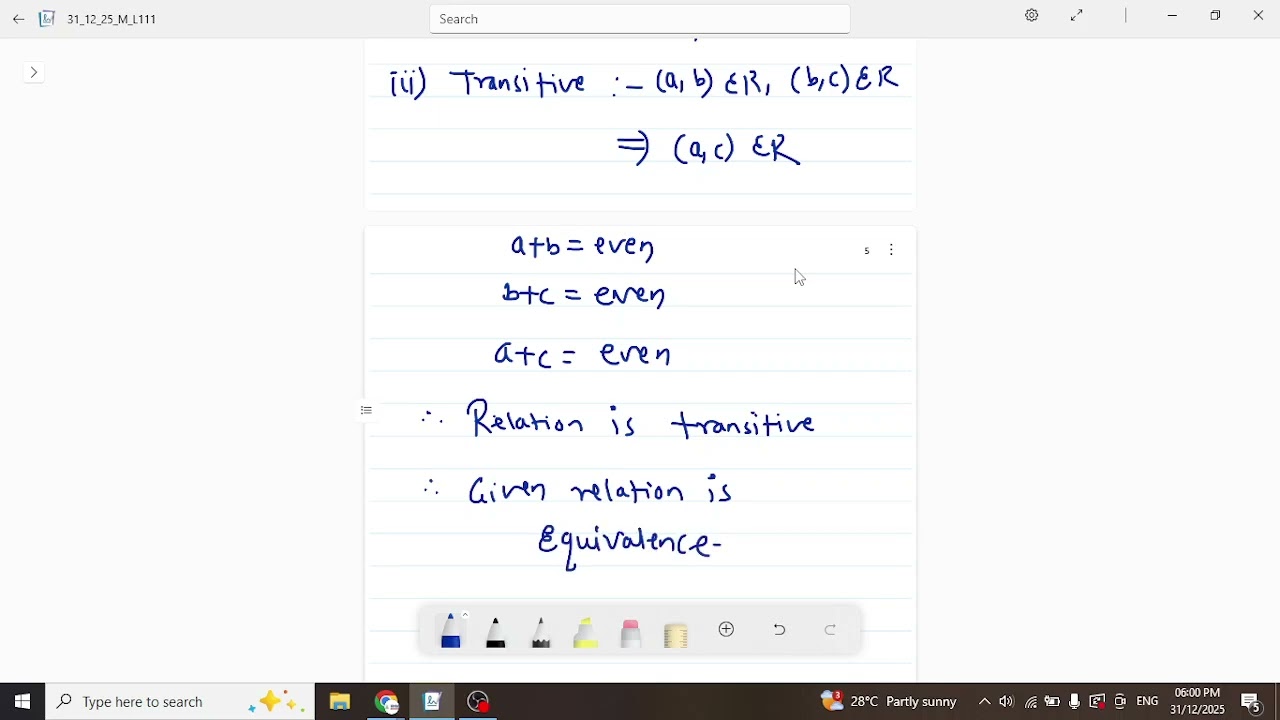 31_12_25_M_L111
Search
iii) Transitive :- (a, b) ∈R, (b,c) ∈R
⇒ (a,c) ∈R
a+b = even
5
b+c = even
a+c = even
∴ Relation is transitive
∴ Given relation is
Equivalence-
Type here to search
3
28°C Partly sunny
ENG
06:00 PM
31/12/2025
5